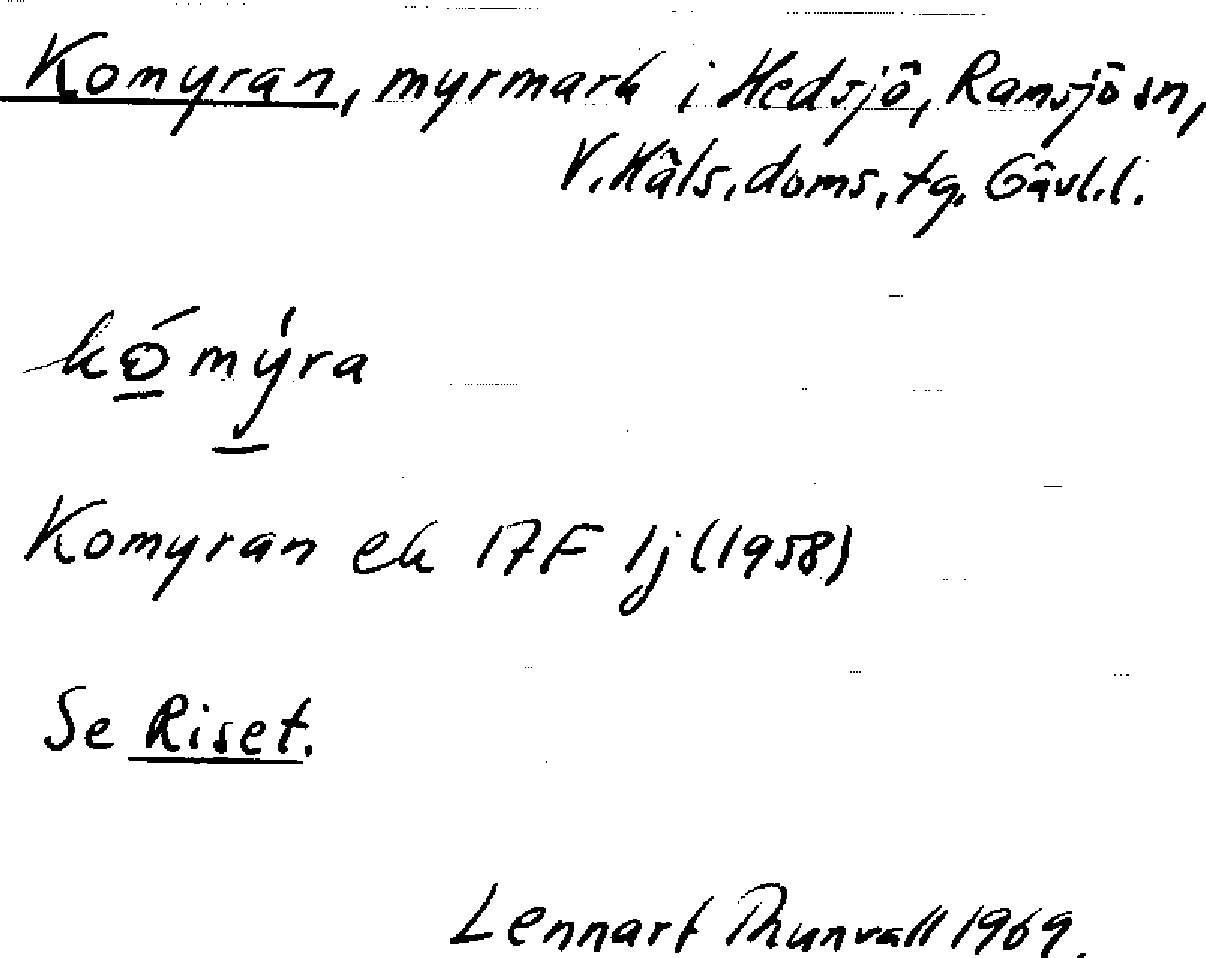 Komyran, myrmark i Hedsjö, Ramsjö sn,
V. Häls. doms. tg. Gävl.l.
kómýra
Komyran ek 17F 1j (1958)
Se Riset.
Lennart Thunvall 1969.